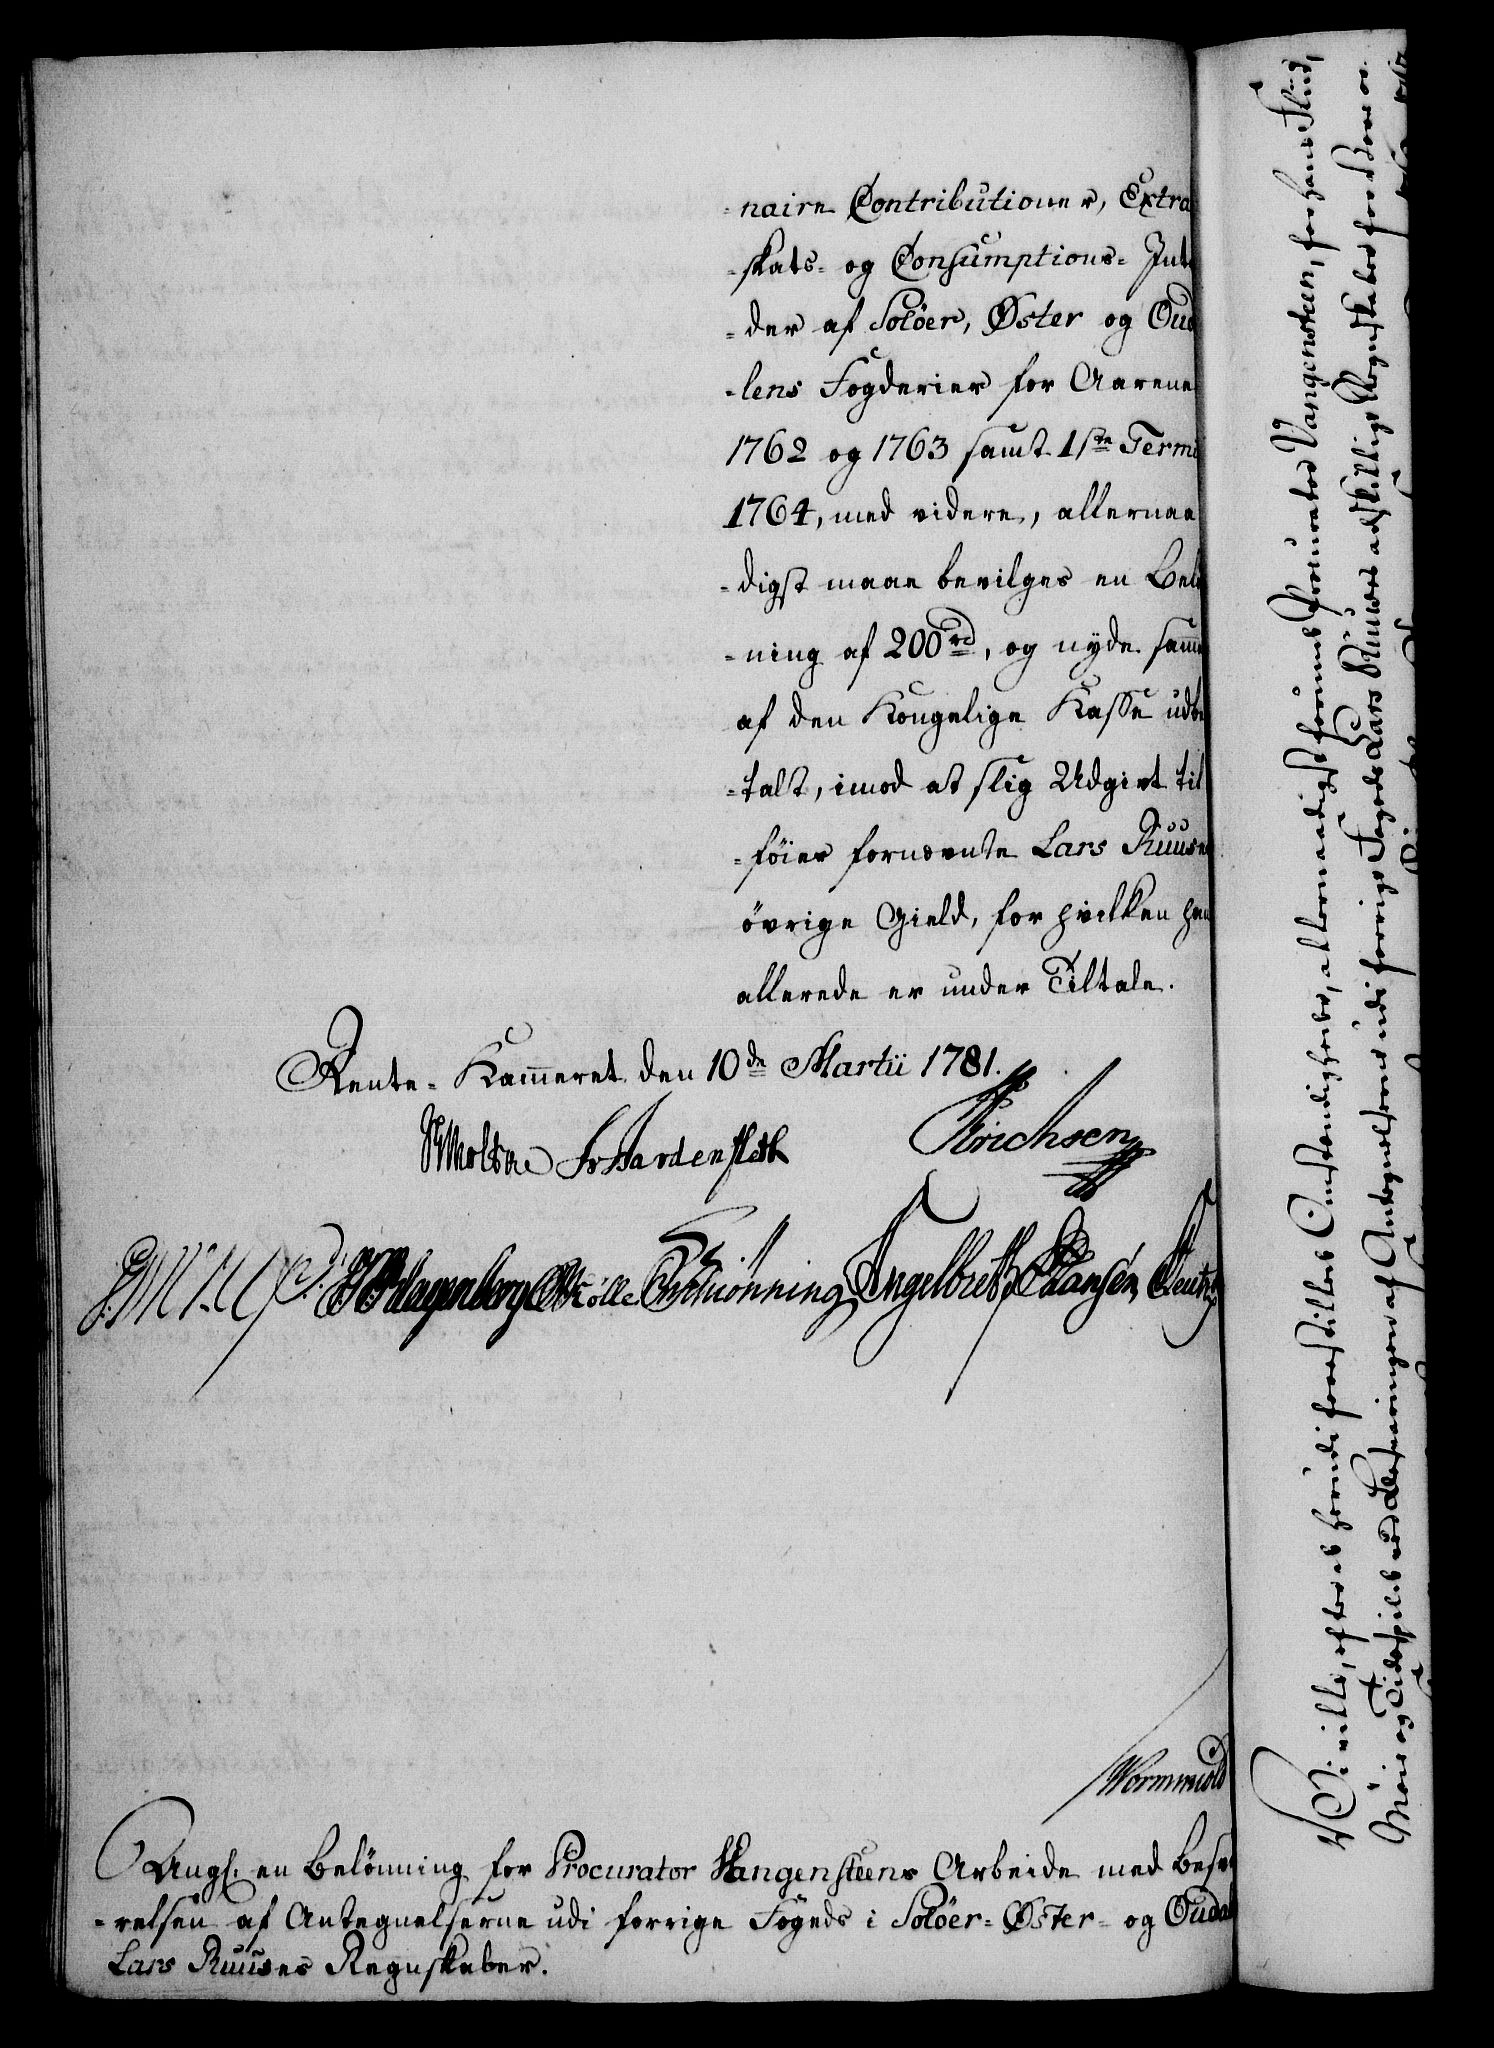 -naire Contributioner, Extra
-skats- og Consumptions- Inte
-der af Soløer, Øster og Oud
-lens Fogderier for Aarene
1762 og 1763 samt 1ste Termi
1764, med videre, allernaa
-digst maae bevilges en Belø
-ning af 200 rd, og nyde samme
af den Kongelige Kasse udbe
-talt, imod at slig Udgivt til
-föier fornevnte Lars Ruuses
övrige Gield, for hvilken han
allerede er under Tiltale.
Rente-Kammeret den 10de Martii 1781.
JGMoltke FvHardenfleth Erichsen
Hagenberg Schiønning Engelbreth Hansen
Wormwold
Ang. en Belønning for Procurator Wangensteens Arbeide med Besva
-relsen af Antegnelserne udi forrige Fogeds i Soløer- Øster- og Oudal
Lars Ruuses Regnskaber.
Vi ville, efter det herudi forestillte Omstændigheder, allernaadigst forundt Procurator Vangensteen, for hans Fliid,
Möie og Tidsspilde ved Besvaringen af Antegnelserne udi forrige Foged Lars Ruuses adskillige Regnskaber for